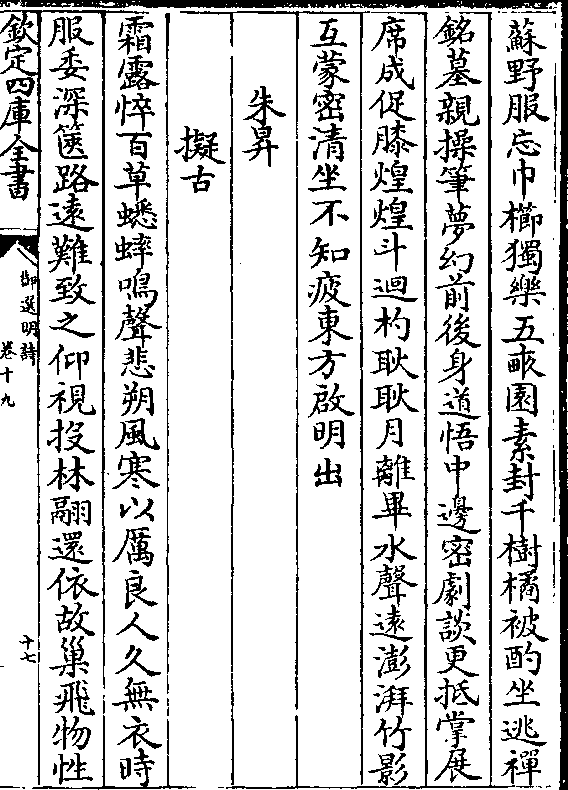 蘇野服忘巾櫛獨樂五畝園素封千樹橘被酌坐逃禪
銘墓親操筆夢幻前後身道悟中邊密劇談更抵掌展
席成促膝煌煌斗迴杓耿耿月離畢水聲遠澎湃竹影
互蒙密清坐不知疲東方啟明出
朱昇
擬古
霜露悴百草蟋蟀鳴聲悲朔風寒以厲良人久無衣時
服委深篋路遠難致之仰視投林翮還依故巢飛物性
欽定四庫全書
御選明詩
卷十九
十七